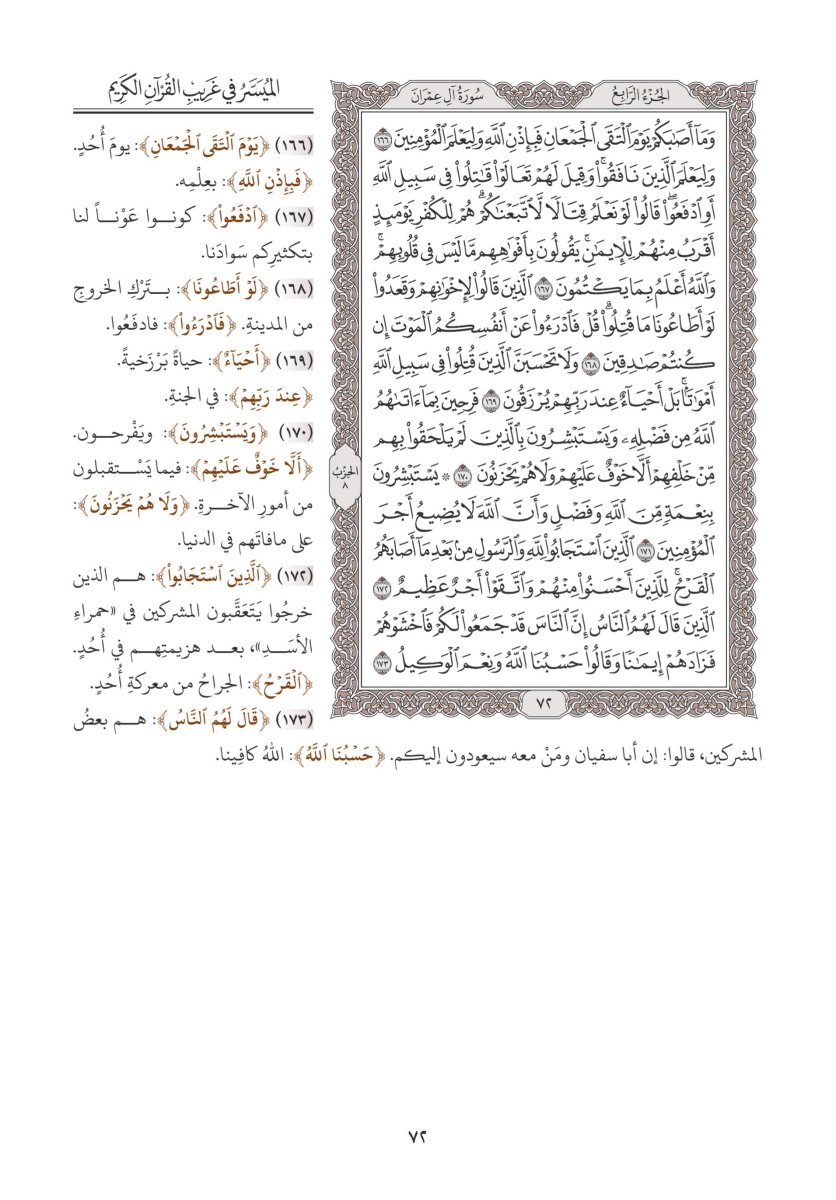 الجُزْءُ الرَّابِعُ
سُورَةُ آلِ عِمْرَانَ
وَمَآ أَصَٰبَكُمْ يَوْمَ ٱلْتَقَى ٱلْجَمْعَانِ فَبِإِذْنِ ٱللَّهِ وَلِيَعْلَمَ ٱلْمُؤْمِنِينَ ١٦٦
وَلِيَعْلَمَ ٱلَّذِينَ نَافَقُوا۟ۚ وَقِيلَ لَهُمْ تَعَالَوْا۟ قَٰتِلُوا۟ فِى سَبِيلِ ٱللَّهِ
أَوِ ٱدْفَعُوا۟ۖ قَالُوا۟ لَوْ نَعْلَمُ قِتَالًا لَّٱتَّبَعْنَٰكُمْۗ هُمْ لِلْكُفْرِ يَوْمَئِذٍ
أَقْرَبُ مِنْهُمْ لِلْإِيمَٰنِۚ يَقُولُونَ بِأَفْوَٰهِهِم مَّا لَيْسَ فِى قُلُوبِهِمْۚ
وَٱللَّهُ أَعْلَمُ بِمَا يَكْتُمُونَ ١٦٧ ٱلَّذِينَ قَالُوا۟ لِإِخْوَٰنِهِمْ وَقَعَدُوا۟
لَوْ أَطَاعُونَا مَا قُتِلُوا۟ۗ قُلْ فَٱدْرَءُوا۟ عَنْ أَنفُسِكُمُ ٱلْمَوْتَ إِن
كُنتُمْ صَٰدِقِينَ ١٦٨ وَلَا تَحْسَبَنَّ ٱلَّذِينَ قُتِلُوا۟ فِى سَبِيلِ ٱللَّهِ
أَمْوَٰتًۢاۚ بَلْ أَحْيَآءٌ عِندَ رَبِّهِمْ يُرْزَقُونَ ١٦٩ فَرِحِينَ بِمَآ ءَاتَىٰهُمُ
ٱللَّهُ مِن فَضْلِهِۦ وَيَسْتَبْشِرُونَ بِٱلَّذِينَ لَمْ يَلْحَقُوا۟ بِهِم
مِّنْ خَلْفِهِمْ أَلَّا خَوْفٌ عَلَيْهِمْ وَلَا هُمْ يَحْزَنُونَ ١٧٠ ۞ يَسْتَبْشِرُونَ
بِنِعْمَةٍ مِّنَ ٱللَّهِ وَفَضْلٍ وَأَنَّ ٱللَّهَ لَا يُضِيعُ أَجْرَ
ٱلْمُؤْمِنِينَ ١٧١ ٱلَّذِينَ ٱسْتَجَابُوا۟ لِلَّهِ وَٱلرَّسُولِ مِنۢ بَعْدِ مَآ أَصَابَهُمُ
ٱلْقَرْحُۚ لِلَّذِينَ أَحْسَنُوا۟ مِنْهُمْ وَٱتَّقَوْا۟ أَجْرٌ عَظِيمٌ ١٧٢
ٱلَّذِينَ قَالَ لَهُمُ ٱلنَّاسُ إِنَّ ٱلنَّاسَ قَدْ جَمَعُوا۟ لَكُمْ فَٱخْشَوْهُمْ
فَزَادَهُمْ إِيمَٰنًا وَقَالُوا۟ حَسْبُنَا ٱللَّهُ وَنِعْمَ ٱلْوَكِيلُ ١٧٣
الحِزْبُ
٨
٧٢
المُيَسَّرُ في غَرِيبِ القُرْآنِ الكَرِيمِ
(١٦٦) ﴿يَوْمَ ٱلْتَقَى ٱلْجَمْعَانِ﴾: يومَ أُحُدٍ.
﴿فَبِإِذْنِ ٱللَّهِ﴾: بعِلْمِه.
(١٦٧) ﴿ٱدْفَعُوا۟﴾: كونوا عَوْناً لنا
بتكثيرِكم سَوادَنا.
(١٦٨) ﴿لَوْ أَطَاعُونَا﴾: بتَرْكِ الخروجِ
من المدينةِ. ﴿فَٱدْرَءُوا۟﴾: فادفَعُوا.
(١٦٩) ﴿أَحْيَآءٌ﴾: حياةً بَرْزَخيةً.
﴿عِندَ رَبِّهِمْ﴾: في الجنةِ.
(١٧٠) ﴿وَيَسْتَبْشِرُونَ﴾: ويَفْرحون.
﴿أَلَّا خَوْفٌ عَلَيْهِمْ﴾: فيما يَسْتقبلون
من أمورِ الآخرةِ. ﴿وَلَا هُمْ يَحْزَنُونَ﴾:
على مافاتَهم في الدنيا.
(١٧٢) ﴿ٱلَّذِينَ ٱسْتَجَابُوا۟﴾: هم الذين
خرجُوا يَتَعَقَّبون المشركين في «حمراءِ
الأسَدِ»، بعد هزيمتِهم في أُحُدٍ.
﴿ٱلْقَرْحُ﴾: الجراحُ من معركةِ أُحُدٍ.
(١٧٣) ﴿قَالَ لَهُمُ ٱلنَّاسُ﴾: هم بعضُ
المشركين، قالوا: إن أبا سفيان ومَنْ معه سيعودون إليكم. ﴿حَسْبُنَا ٱللَّهُ﴾: اللهُ كافِينا.
٧٢